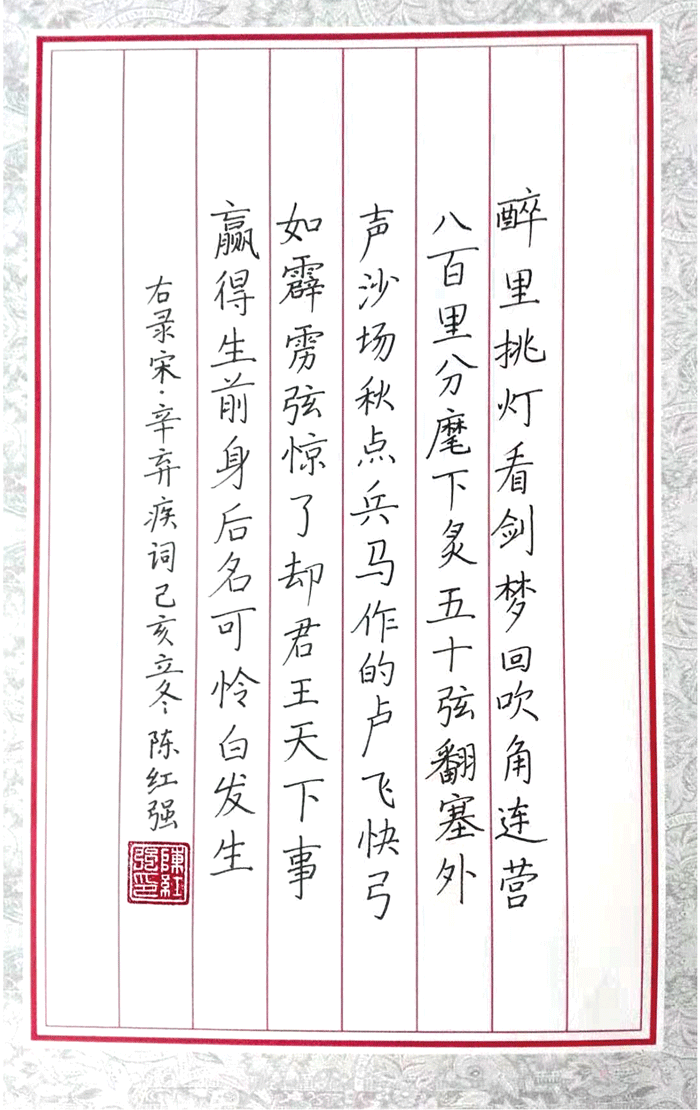 醉里挑灯看剑梦回吹角连营
八百里分麾下炙五十弦翻塞外
声沙场秋点兵马作的卢飞快弓
如霹雳弦惊了却君王天下事
赢得生前身后名可怜白发生
右录宋·辛弃疾词己亥立冬陈红强
陳紅强印